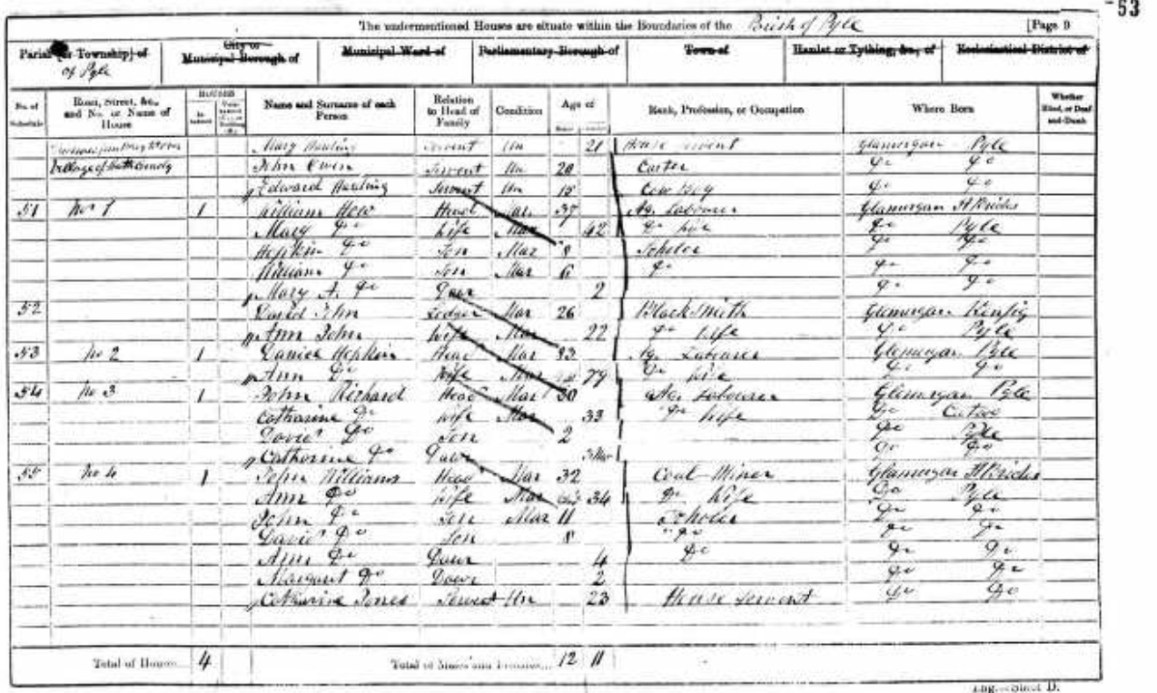 53
The undermentioned Houses are situate within the Boundaries of the Parish of Pyle [Page 9
Parish [or Township] of City or Municipal Borough of Municipal Ward of Parliamentary Borough of Town of Hamlet or Tything, &c., of Ecclesiastical District of
of Pyle
No. of Schedule Road, Street, &c., and No. or Name of House HOUSES Name and Surname of each Person Relation to Head of Family Condition Age of Rank, Profession, or Occupation Where Born Whether Blind, or Deaf-and-Dumb
Mary Servant Un 21 House Servent Glamorgan Pyle
Village of John Owen Servent Un 20 Carter Do Do
Edward Servent Un 15 Cow Boy Do Do
51 No 1 1 William Hew Head Mar 37 Ag. Labourer Glamorgan St Brides
Mary Do Wife Mar 42 Do Wife Do Pyle
Hopkin Do Son Mar 8 Scholer Do Do
William Do Son Mar 6 Do Do Do
Mary A. Do Daur 2 Do Do
52 David John Lodger Mar 26 Blacksmith Glamorgan Kenfig
Ann John Wife Mar 22 Do Wife Do Pyle
53 No 2 1 Daniel Hopkin Head Mar 83 Ag. Labourer Glamorgan Pyle
Ann Do Wife Mar 79 Do Wife Do Do
54 No 3 1 John Richard Head Mar 30 Ag. Labourer Glamorgan Pyle
Catharine Do Wife Mar 33 Do Wife Do
David Do Son 2 Do Pyle
Catherine Do Daur Do Do
55 No 4 1 John Williams Head Mar 32 Coal Miner Glamorgan St Brides
Ann Do Wife Mar 34 Do Wife Do Pyle
John Do Son Mar 11 Scholer Do Do
David Do Son 8 Do Do Do
Ann Do Daur 4 Do Do Do
Margaret Do Daur 2 Do Do
Catharine Jones Servent Un 23 House Servent Do Do
Total of Houses... 4 Total of Males and Females... 12 11
Eng.—Sheet D.